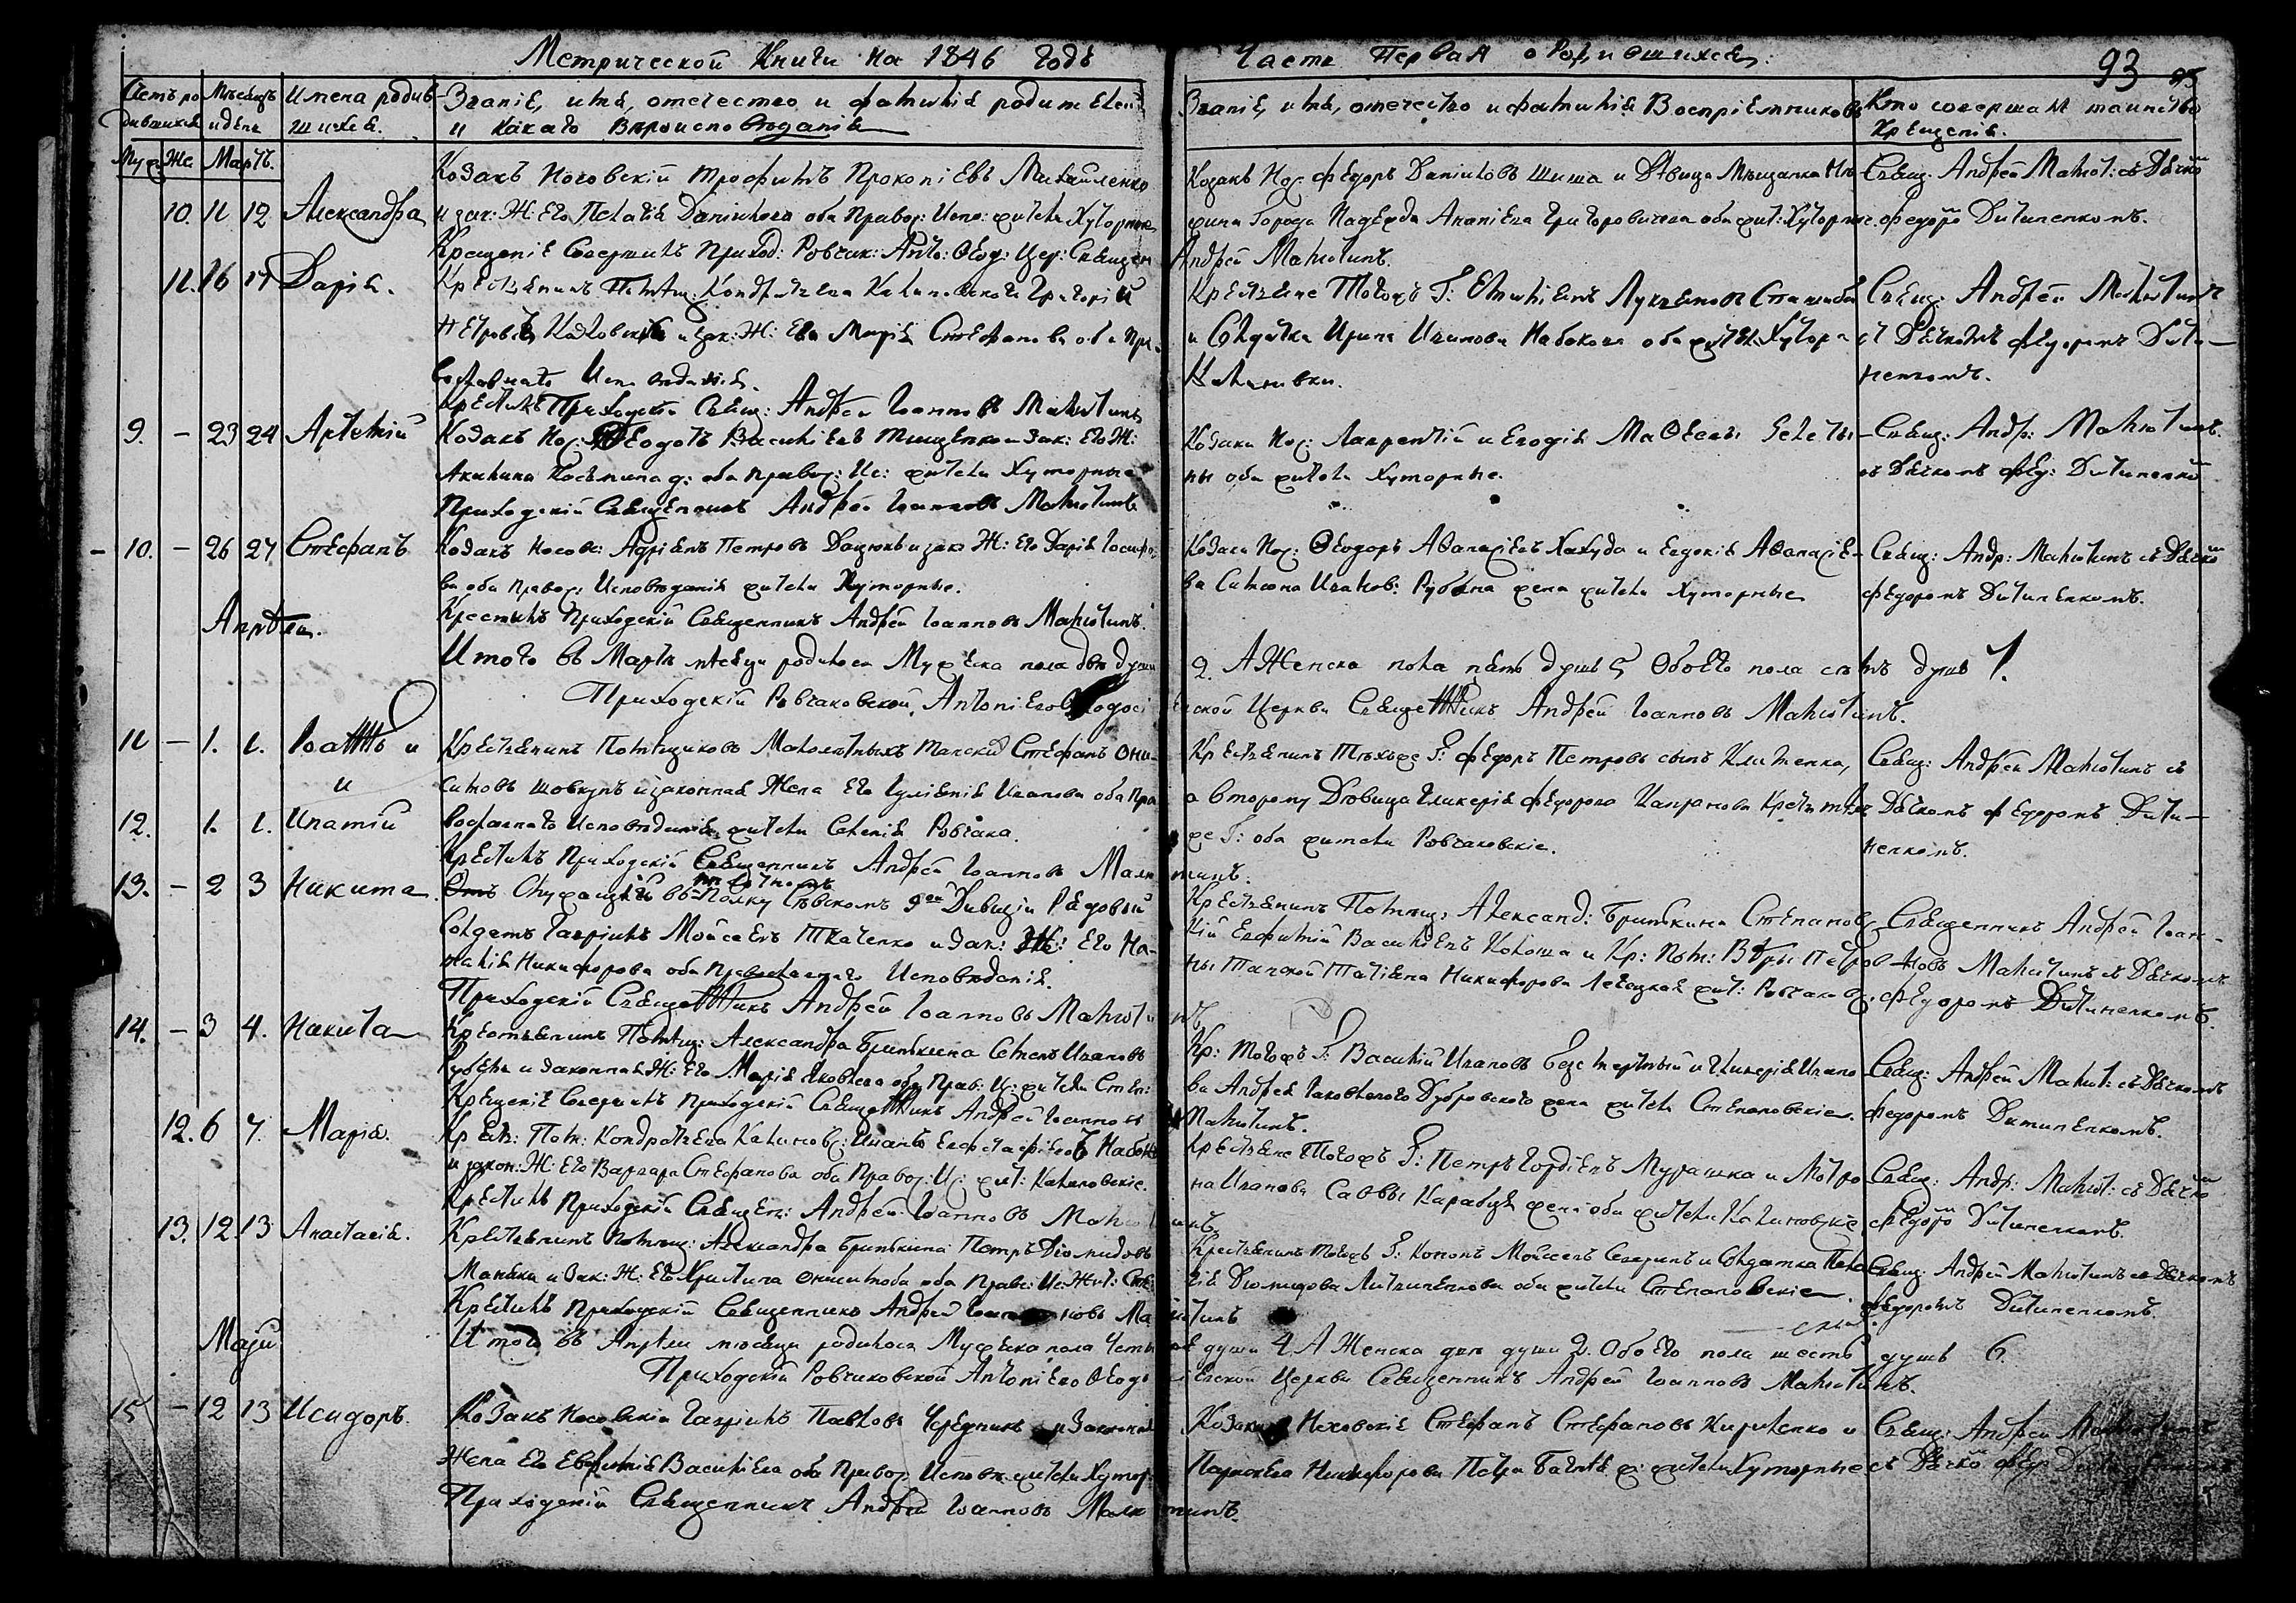 Метрической Книги на 1846 годъ
Часть Первая о Родившихся.
93
Счетъ родившихся
Мѣсяцъ и день
Имена родившихся.
Званіе, имя, отечество и фамилія родителей
и какого вѣроисповѣданія
Званіе, имя, отечество и фамилія Воспріемниковъ
Кто совершалъ таинство
Крещенія.
Муж. Же. Мартъ.
Козакъ Носовскій Трофимъ Прокопіевъ Михайленко
10. 11 12 Александра
и зак: Ж: его Пелагія Даніилова оба Правос: Испо: жители Хуторные
Крещеніе Совершилъ Приход: Ровчак: Анто: Ѳеод: Цер: Священ
Козакъ Нос: Федоръ Даніиловъ Шиша и Дѣвица Мѣщанка Нѣ-
жина города Надежда Ананіева Григоровичева оба жит: Хуторные.
Андрей Малютинъ.
Свящ: Андрей Малют: съ Дьячко
Федоро Дитиненкомъ.
11. 16 17 Дарія.
Крестьянинъ Помѣщ: Кондратьева Калиновскаго Григорій
Петровъ и зак: Ж: Его Марія Стефанова оба Пра-
вославнаго Исповѣданія.
Крестилъ Приходскій Свящ: Андрей Іоанновъ Малютинъ
Крестьяне Тогожъ Г: Емиліанъ Лукьяновъ
и Солдатка Ирина Иванова Набокова оба жители Хутора
Калиновки.
Свящ: Андрей Малютинъ
съ Дьячкомъ Федоромъ Дити-
ненкомъ.
9. - 23 24 Артемій
Козакъ Нос: Ѳеодотъ Василіевъ Тищенко и зак: Его Ж:
Акилина Косьмина д: оба Правос: Ис: жители Хуторные
Приходскій Священникъ Андрей Іоанновъ Малютинъ
Козаки Нос: Лаврентій и Евдокія Матѳеевы
ны оба жители Хуторные.
Свящ: Андр: Малютинъ
съ Дьячкомъ Фед: Дитиненко
10. - 26 27 Стефанъ
Козакъ Носовс: Адріанъ Петровъ Дацюкъ и зак: Ж: Его Дарія Іосифо-
ва оба Правос: Исповѣданія жители Хуторные.
Крестилъ Приходскій Священникъ Андрей Іоанновъ Малютинъ.
Козаки Нос: Ѳеодоръ Аѳанасіевъ Халуда и Евдокія Аѳанасіе-
ва Симеона Иванов: жена жители Хуторные
Свящ: Андр: Малютинъ съ Дьячко
Федоромъ Дитиненкомъ.
Апрѣля.
Итого въ Мартѣ мѣсяцѣ родилося Мужеска пола двѣ души
2. А Женска пола пять душъ 5 Обоего пола семъ душъ 7.
Приходскій Ровчаковской Антоніево Ѳеодосі
евской Церкви Священникъ Андрей Іоанновъ Малютинъ.
11 - 1. 1. Іоаннъ и
и
12. 1. 1. Ипатій
Крестьянинъ Помѣщиковъ Малолѣтныхъ Танскихъ Стефанъ Они-
симовъ Шовкунъ и законная Жена Его Іуліянія Иванова оба Пра-
вославнаго Исповѣданія жители Селенія Ровчака.
Крестилъ Приходскій Священникъ Андрей Іоанновъ Малю
тинъ.
Крестьянинъ Тѣхъже Г: Федоръ Петровъ сынъ Клименка,
а второму Дѣвица Гликерія Федорова
же Г: оба жители Ровчаковскіе.
Свящ: Андрей Малютинъ съ
Дьячкомъ Федоромъ Дити-
ненкомъ.
13. - 2 3 Никита
Служащій въ пѣхотномъ Полку Сѣвскомъ 9ой Дивизіи Рядовый
Солдатъ Гавріилъ Мойсеевъ Ткаченко и зак: Ж: Его На-
талія Никифорова оба Православнаго Исповѣданія.
Приходскій Священникъ Андрей Іоанновъ Малюти
нъ.
Крестьянинъ Помѣщ: Александ: Бриткина Степанов-
кій Евфимій Василіевъ Кокоша и Кр: Пом: Вѣры Петров-
ны Танской Татіяна Никифорова жит: Ровчаков:
Священникъ Андрей Іоан-
новъ Малютинъ съ Дьячкомъ
Федоромъ Дитиненкомъ.
14. - 3 4. Никита
Крестьянинъ Помѣщ: Александра Бриткина Семенъ Ивановъ
и законная Ж: Его Марія Яковлева оба Прав: И: жители Степ:
Крещеніе Совершилъ Приходскій Священникъ Андрей Іоанновъ
Малютинъ.
Кр: Тогожъ Г: Василій Ивановъ Безсмертный и Гликерія Ивано-
ва Андрея Іаковлевого Дубровского жена жители Степановскіе.
Свящ: Андрей Малют: съ Дьячкомъ
Федоромъ Дитиненкомъ.
12. 6 7. Марія.
Крес: Пом: Кондратьева Калинов: Иванъ Евстафіевъ Набокъ
и закон: Ж: Его Варвара Стефанова оба Правос: Ис: жит: Калиновскіе.
Крестилъ Приходскій Священ: Андрей Іоанновъ Малютинъ.
Крестьяне Тогожъ Г: Петръ Гордіевъ Мурашка и Мотро-
на Иванова Саввы жена оба жители Калиновскіе
Свящ: Андр: Малют: съ Дьячко
Федоро Дитиненкомъ.
13. 12 13 Анастасія.
Крестьянинъ Помѣщ: Александра Бриткина Петръ Діомидовъ
Манька и Зак: Ж: Его Христина Онисимова оба Прав: Ис: Жит: Сте:
Крестилъ Приходскій Священникъ Андрей Іоанновъ Ма
лютинъ
Крестьянинъ Тогожъ Г: Кононъ Мойсеевъ Северинъ и Солдатка Пела
гія Діомидова Литвиненкова оба жители Степановскіе
Свящ: Андрей Малютинъ съ Дьячкомъ
Федоромъ Дитиненкомъ.
Маія
Итого въ Апрѣли мѣсяцѣ родилося Мужеска пола Четы
ре души 4 А Женска две души 2. Обоего пола шесть душъ 6.
Приходскій Ровчаковской Антоніево Ѳеодо
сіевской Церкви Священникъ Андрей Іоанновъ Малютинъ.
15 - 12 13 Исидоръ.
Козакъ Носовскій Гавріилъ Павловъ Чередникъ и Законная
Жена Его Евфимія Василіева оба Правос: Исповѣ: жители Хутор:
Приходскій Священникъ Андрей Іоанновъ Малю
тинъ.
Козаки Носовскіе Стефанъ Стефановъ Кириленко и
Параскева Никифорова Петра ж: жители Хуторные
Свящ: Андрей Малютинъ
съ Дьячко Фед: